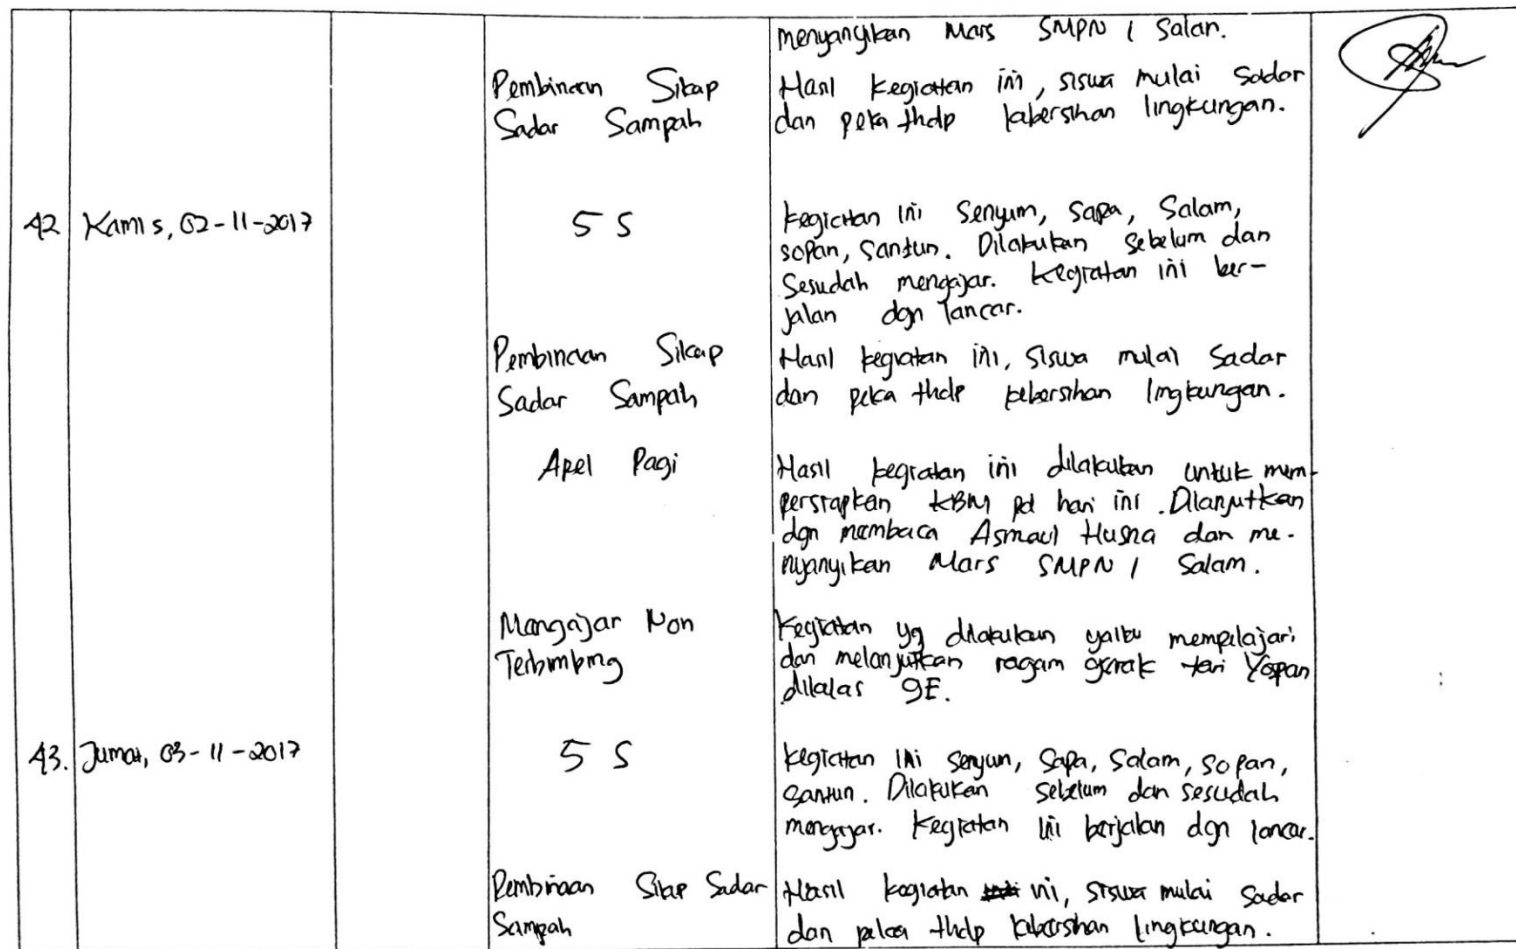 menyanyikan Mars SMPN 1 Salam.
Pembinaan Sikap
Sadar Sampah
Hasil kegiatan ini, siswa mulai sadar
dan peka thdp kebersihan lingkungan.
42 Kamis, 02-11-2017
5 S
kegiatan ini Senyum, Sapa, Salam,
sopan, Santun. Dilakukan sebelum dan
Sesudah mengajar. Kegiatan ini ber-
jalan dgn lancar.
Pembinaan Sikap
Sadar Sampah
Hasil kegiatan ini, siswa mulai Sadar
dan peka thdp kebersihan lingkungan.
Apel Pagi
Hasil kegiatan ini dilakukan untuk mem-
persiapkan KBM pd hari ini. Dilanjutkan
dgn membaca Asmaul Husna dan me-
nyanyikan Mars SMPN 1 Salam.
Mengajar Non
Terbimbing
Kegiatan yg dilakukan yaitu mempelajari
dan melanjutkan ragam gerak tari Yospan
dikelas 9E.
43. Jumat, 03-11-2017
5 S
kegiatan ini Senyum, Sapa, Salam, Sopan,
Santun. Dilakukan sebelum dan sesudah
mengajar. Kegiatan ini berjalan dgn lancar.
Pembinaan Sikap Sadar
Sampah
Hasil kegiatan ini, siswa mulai Sadar
dan peka thdp kebersihan lingkungan.